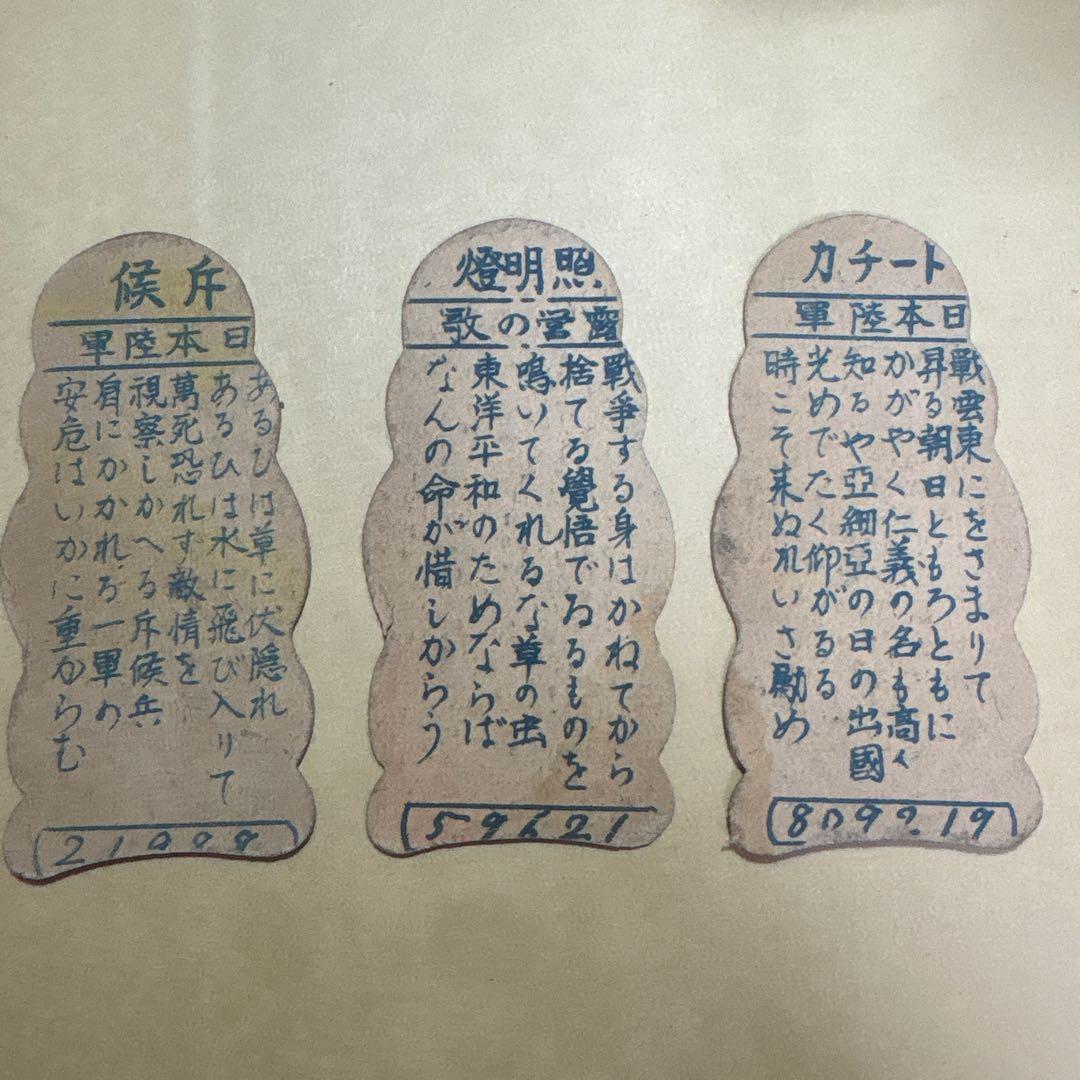 斥候
日本陸軍
あるひは草に伏隠れ
あるひは水に飛び入りて
萬死恐れす敵情を
視察しかへる斥候兵
肩にかかれる一軍の
安危はいかに重からむ
照明燈
露営の歌
戰爭する身はかねてから
捨てる覺悟でゐるものを
鳴いてくれるな草の虫
東洋平和のためならば
なんの命が惜しからう
59621
トーチカ
日本陸軍
戰雲東にをさまりて
昇る朝日ともろともに
かがやく仁義の名も高く
知るや亞細亞の日の出國
光めでたく仰がるる
時こそ来ぬれいさ勵め